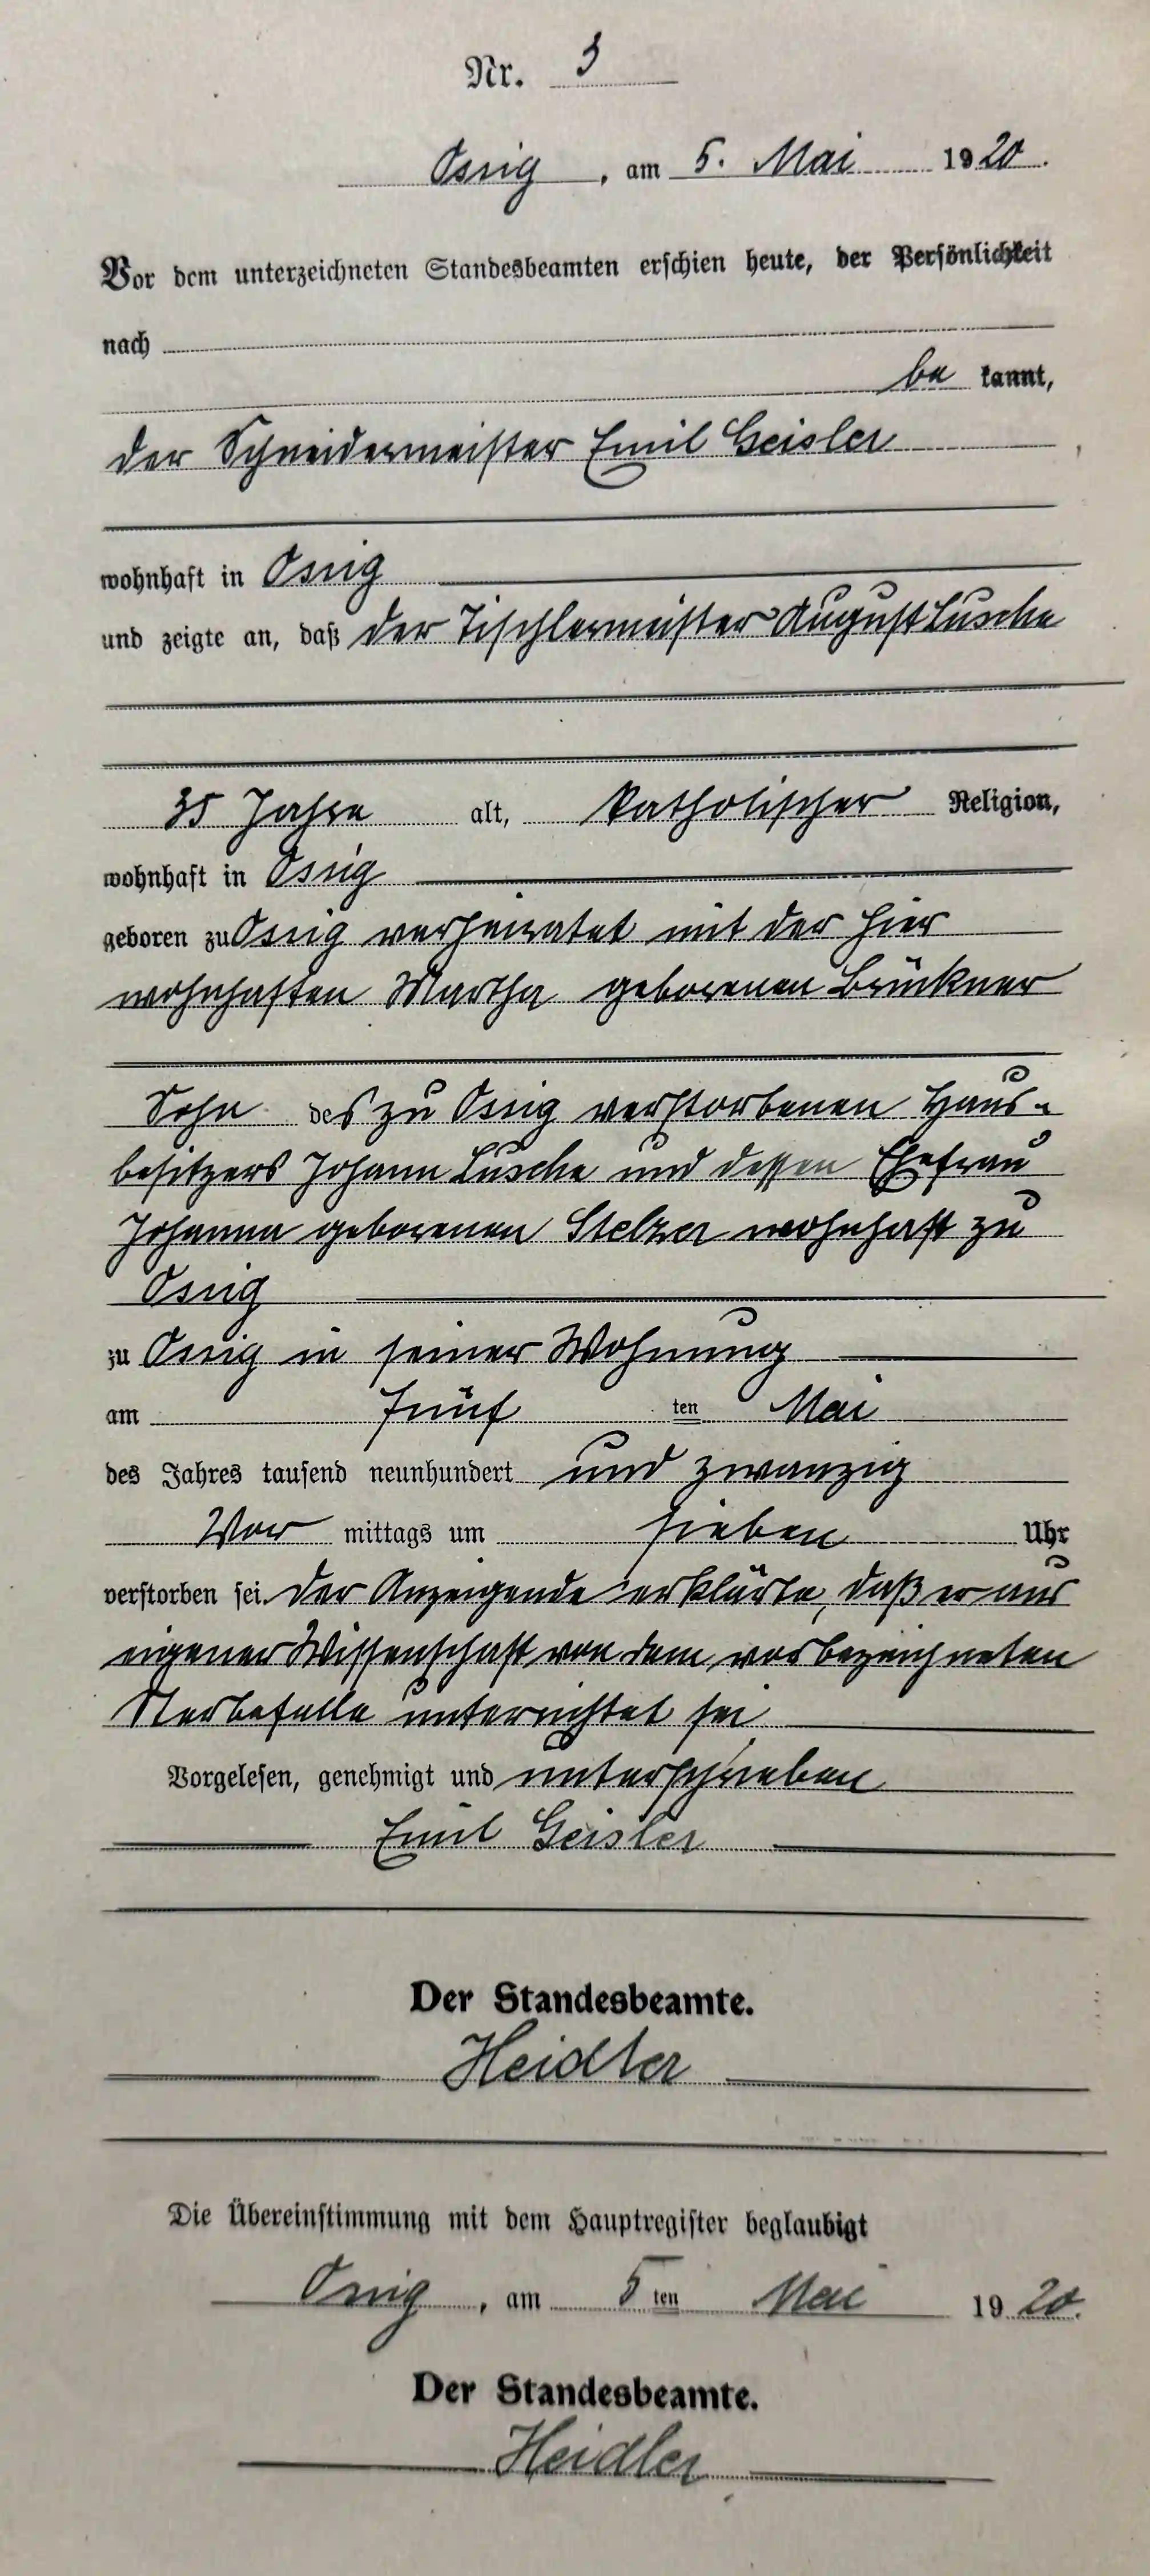 Nr. 3
Ossig, am 5. Mai 1920.
Vor dem unterzeichneten Standesbeamten erschien heute, der Persönlichkeit
nach
be kannt,
der Schneidermeister Emil Geisler
wohnhaft in Ossig
und zeigte an, daß der Tischlermeister August Lusche
35 Jahre alt, katholischer Religion,
wohnhaft in Ossig
geboren zu Ossig verheiratet mit der hier
wohnhaften Martha geborenen Brückner
Sohn des zu Ossig verstorbenen Haus-
besitzers Johann Lusche und dessen Ehefrau
Johanna geborenen Stelzer wohnhaft zu
Ossig
zu Ossig in seiner Wohnung
am fünf ten Mai
des Jahres tausend neunhundert und zwanzig
Vor mittags um sieben Uhr
verstorben sei. Der Anzeigende erklärte, daß er aus
eigener Wissenschaft von dem vorbezeichneten
Sterbefalle unterrichtet sei
Vorgelesen, genehmigt und unterschrieben
Emil Geisler
Der Standesbeamte.
Heidler
Die Übereinstimmung mit dem Hauptregister beglaubigt
Ossig, am 5 ten Mai 1920.
Der Standesbeamte.
Heidler